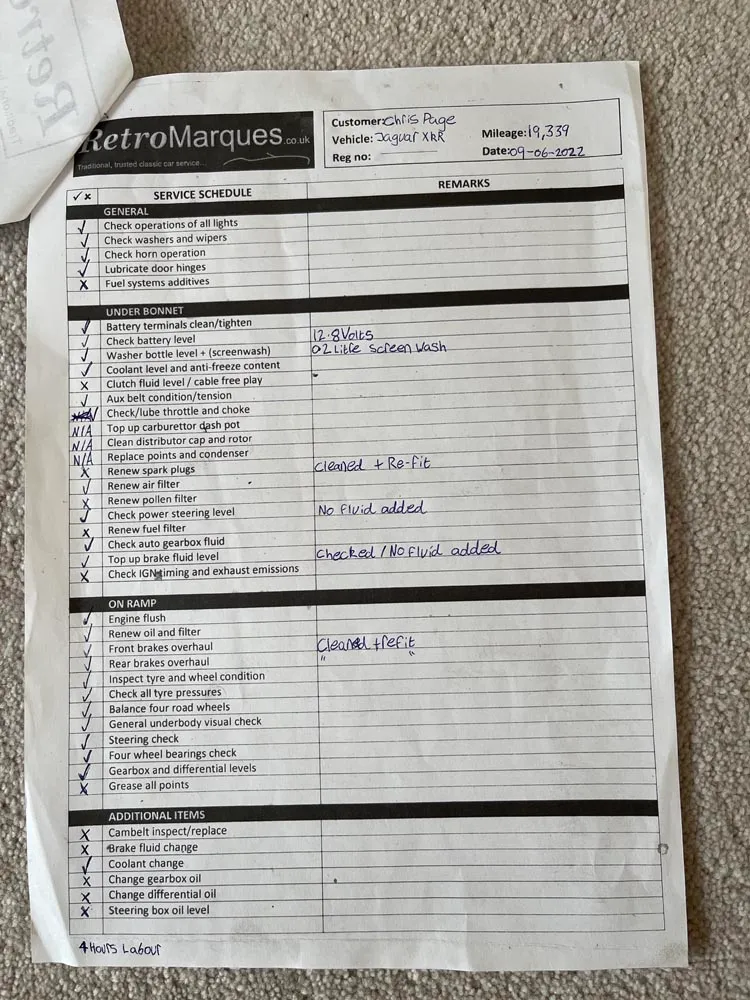 Retro
RetroMarques.co.uk
Traditional, trusted classic car service...
Customer: Chris Page
Vehicle: Jaguar XKR Mileage: 19,339
Reg no: Date: 09-06-2022
✓ × SERVICE SCHEDULE REMARKS
GENERAL
✓ Check operations of all lights
✓ Check washers and wipers
✓ Check horn operation
✓ Lubricate door hinges
X Fuel systems additives
UNDER BONNET
✓ Battery terminals clean/tighten
✓ Check battery level 12.8 Volts
✓ Washer bottle level + (screenwash) 02 Litre Screen Wash
✓ Coolant level and anti-freeze content
X Clutch fluid level / cable free play
✓ Aux belt condition/tension
✓ Check/lube throttle and choke
N/A Top up carburettor dash pot
N/A Clean distributor cap and rotor
N/A Replace points and condenser
X Renew spark plugs Cleaned + Re-fit
✓ Renew air filter
X Renew pollen filter
✓ Check power steering level No Fluid added
X Renew fuel filter
✓ Check auto gearbox fluid
✓ Top up brake fluid level Checked / No Fluid added
X Check IGN timing and exhaust emissions
ON RAMP
✓ Engine flush
✓ Renew oil and filter
✓ Front brakes overhaul Cleaned + refit
✓ Rear brakes overhaul " "
✓ Inspect tyre and wheel condition
✓ Check all tyre pressures
✓ Balance four road wheels
✓ General underbody visual check
✓ Steering check
✓ Four wheel bearings check
✓ Gearbox and differential levels
X Grease all points
ADDITIONAL ITEMS
X Cambelt inspect/replace
X Brake fluid change
✓ Coolant change
X Change gearbox oil
X Change differential oil
X Steering box oil level
4 Hours Labour